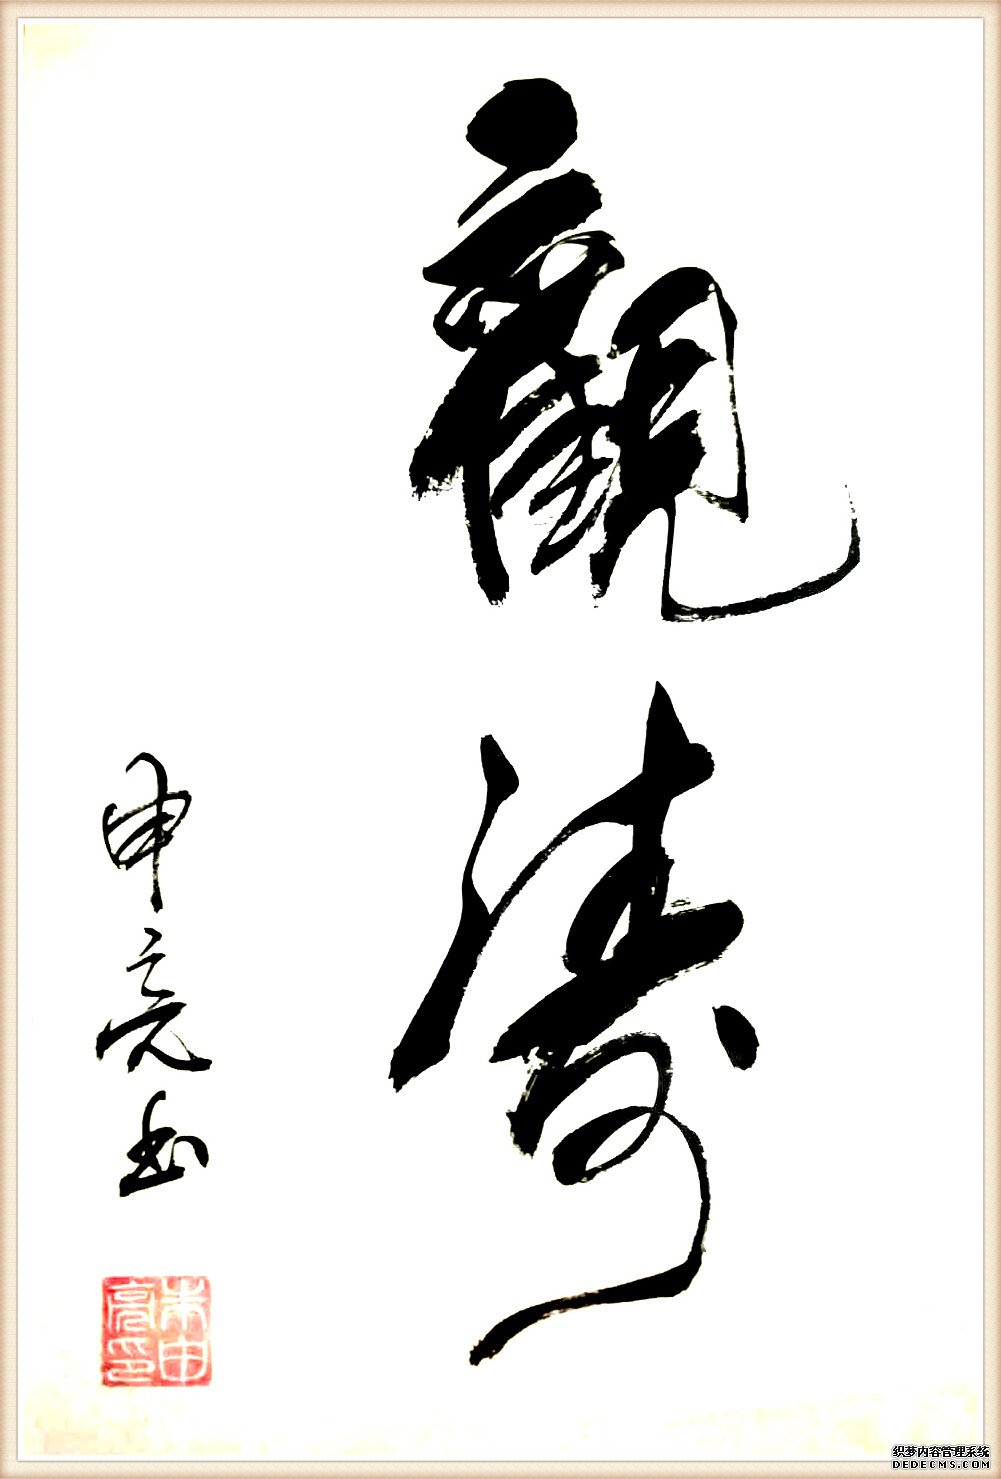 觀濤
申亮书
朱申亮印
织梦内容管理系统
DEDECMS.COM